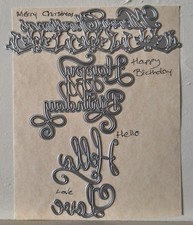 Merry Christmas
Merry Christmas
Happy
Birthday
Happy
Birthday
Hello
Hello
Love
Love